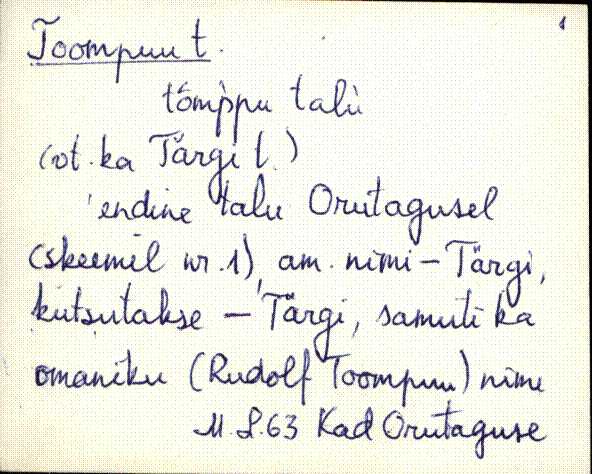 1
Toompuu t.
tòmppu talù
(vt. ka Tärgi t.)
endine talu Orutagusel
(skeemil nr. 1), am. nimi – Tärgi,
kutsutakse – Tärgi, samuti ka
omaniku (Rudolf Toompuu) nime
M. S. 63 Kad Orutaguse